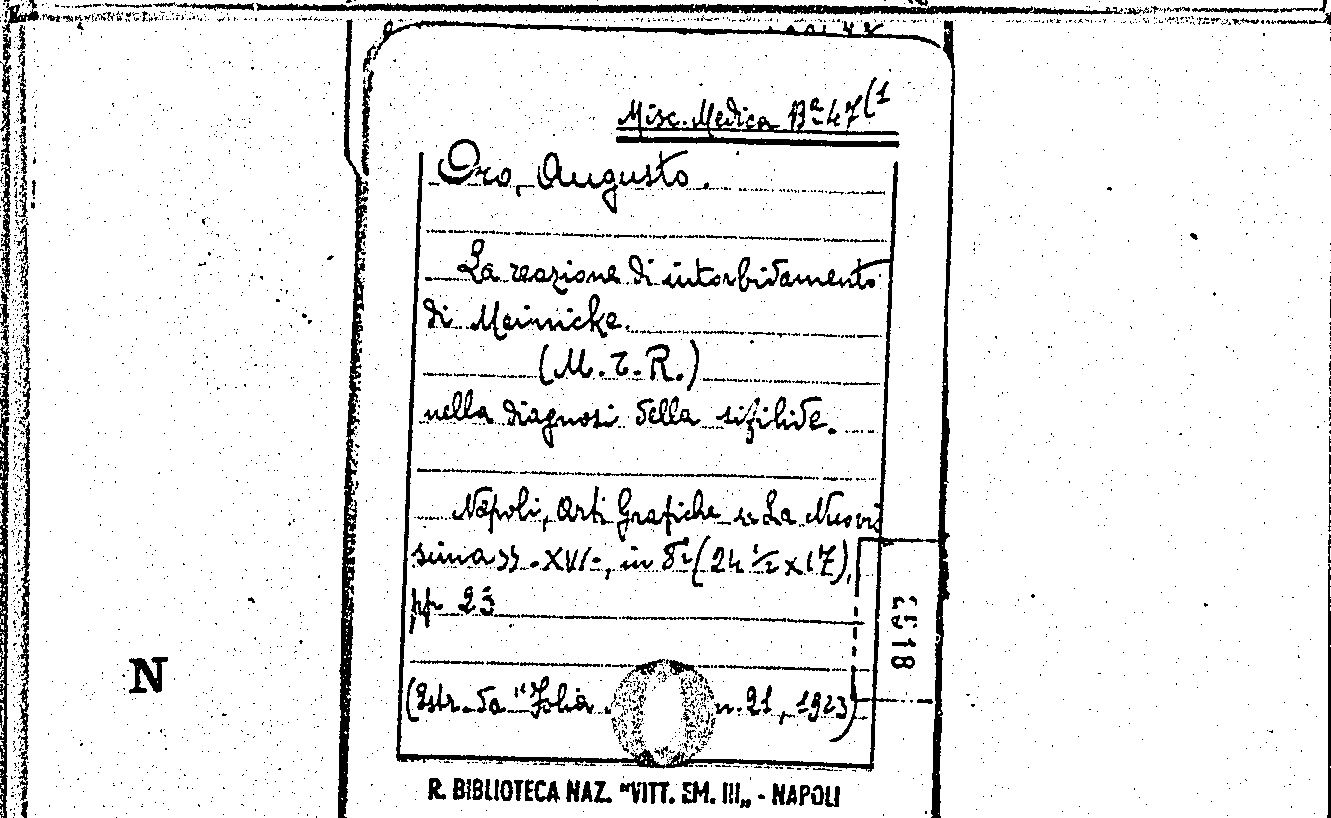 Misc. Medica Ba 47(1
Oro, Augusto.
La reazione di intorbidamento
di Meinicke.
(M. T. R.)
nella diagnosi della sifilide.
Napoli, Arti Grafiche « La Nuovis
sima » - XVI -, in 8° (24 ½ x 17),
pp 23
(Estr. da "Folia n. 21, 1923)
2518
N
R. BIBLIOTECA NAZ. "VITT. EM. III„ - NAPOLI